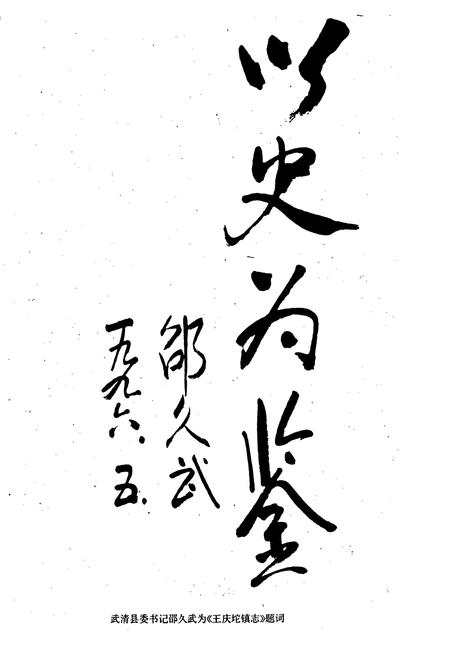 以史为鉴
邵久武
一九九六.五.
武清县委书记邵久武为《王庆坨镇志》题词